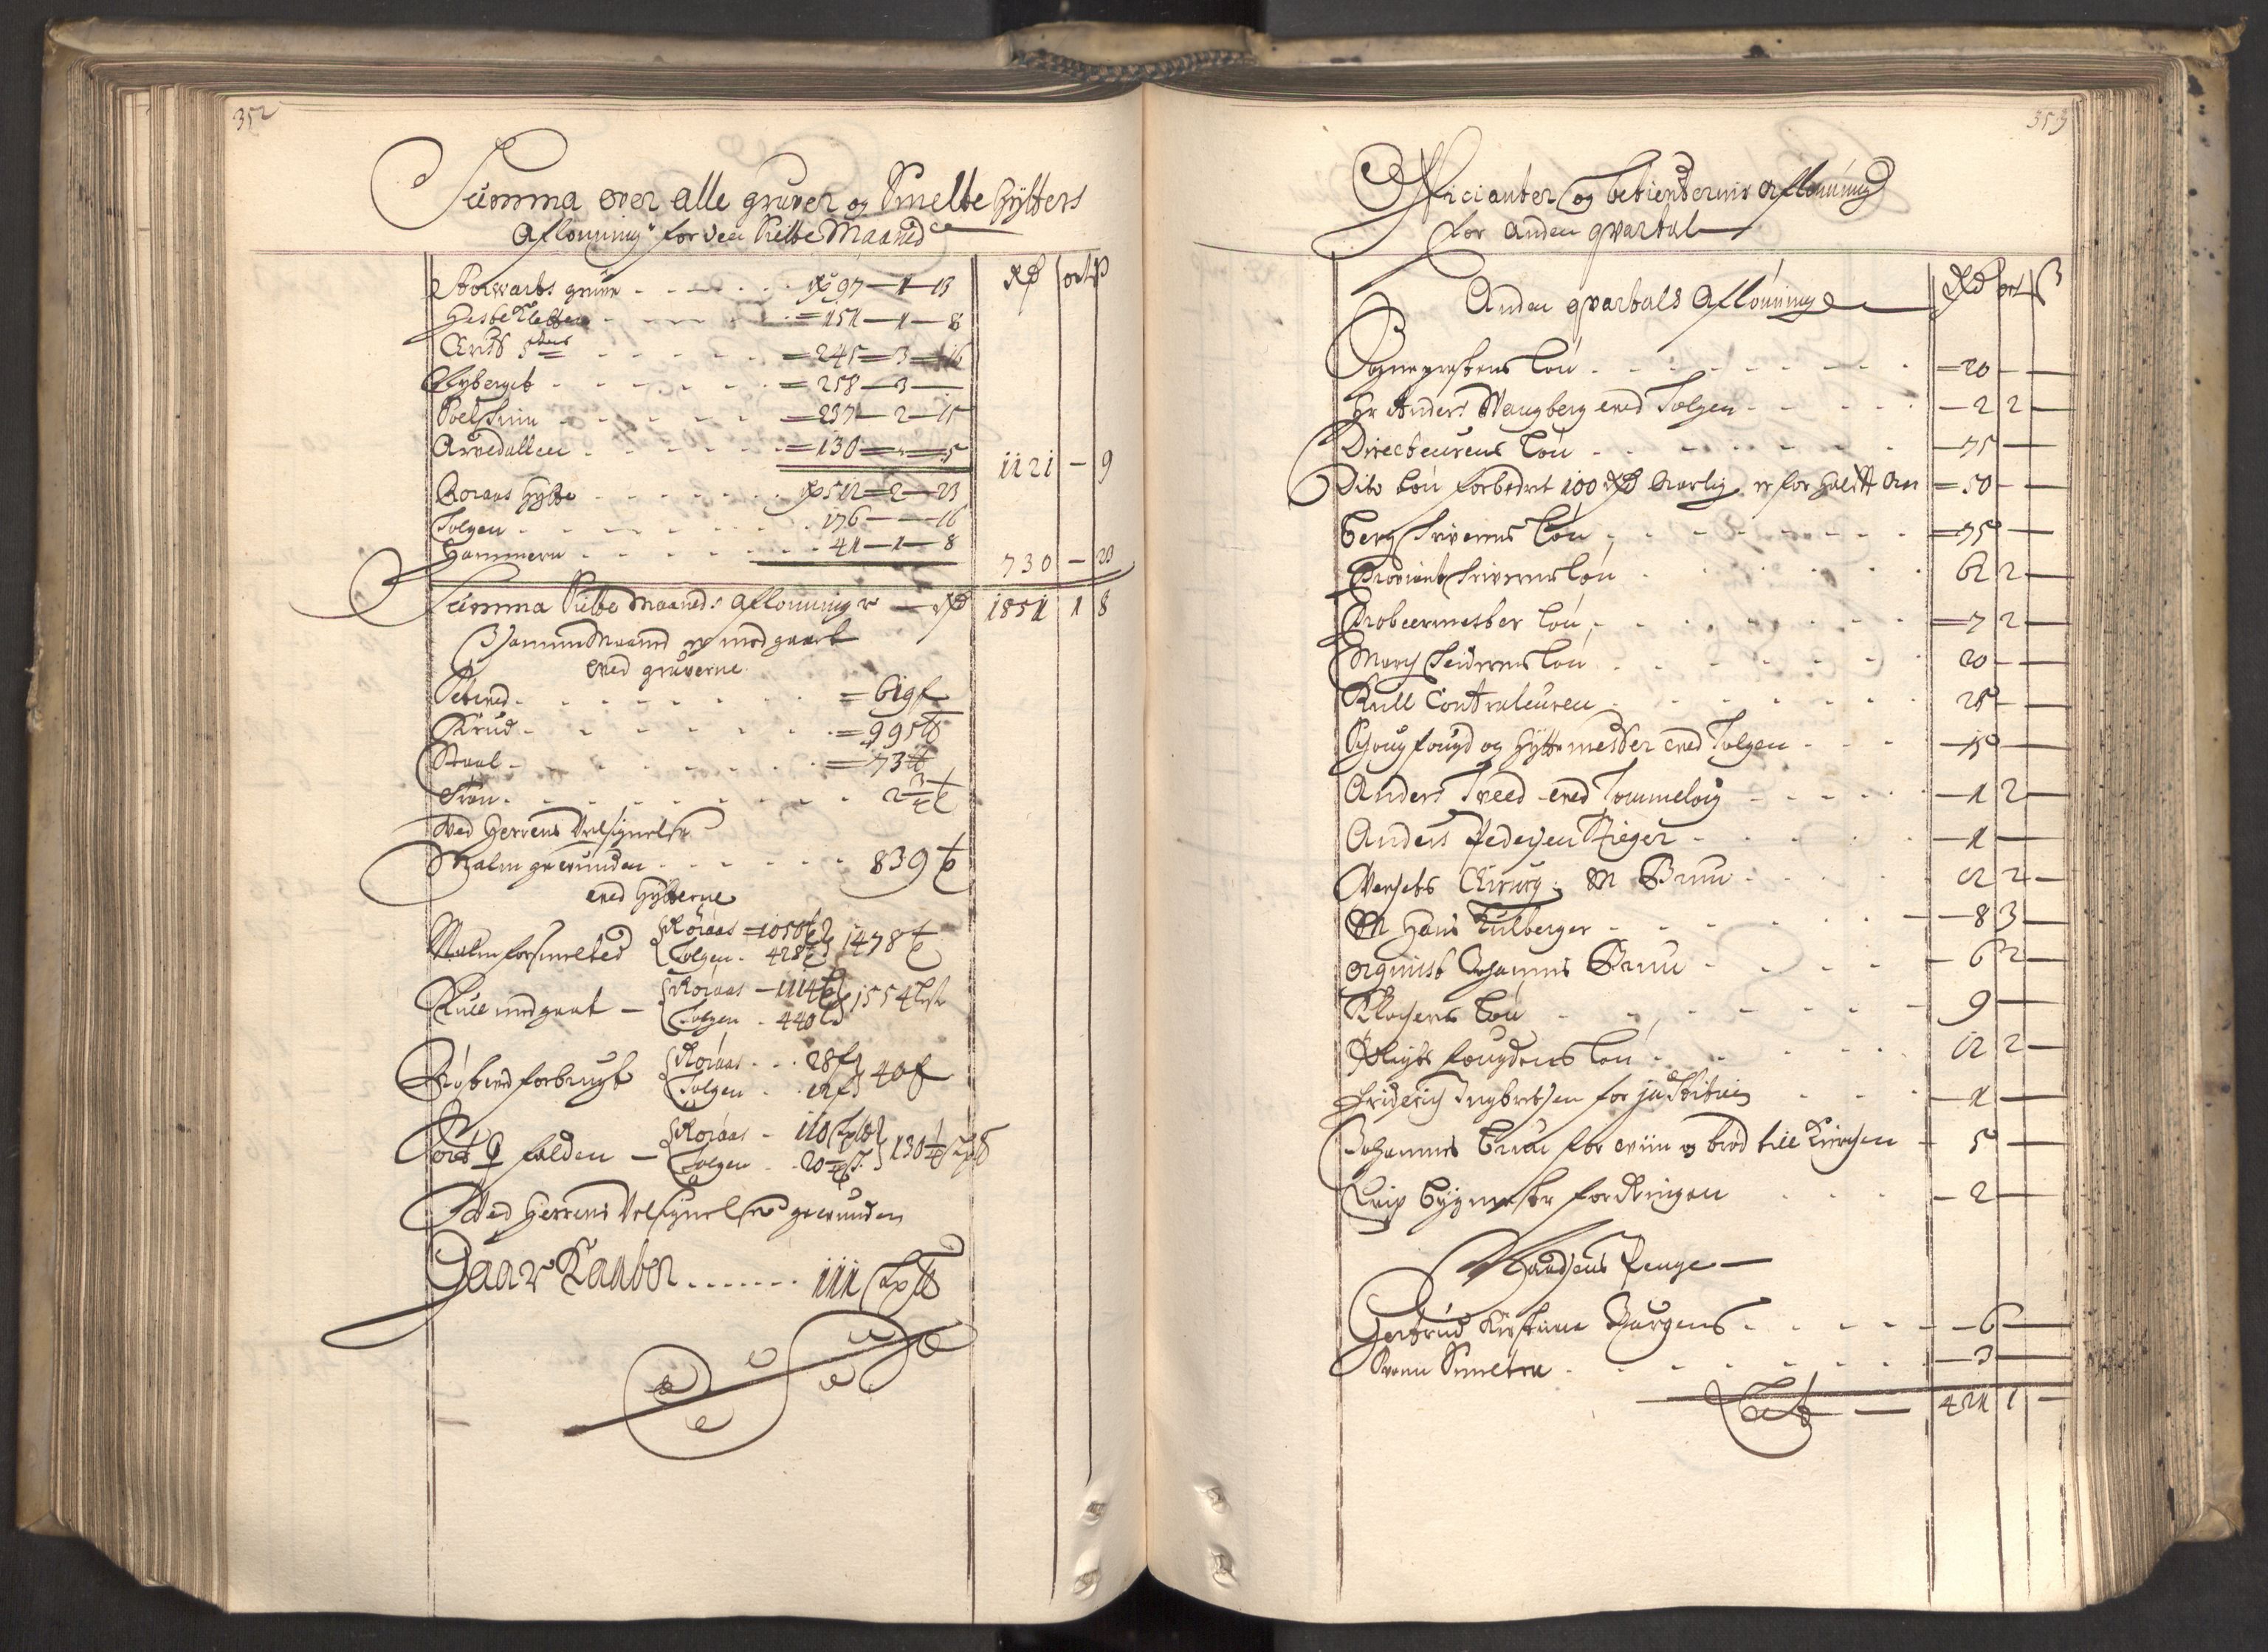 352
Summa over alle gruver og Smelte hÿtters
Aflønning for den Siette Maaned
Rd ort ß
Storwarts grube - - - Rd 97 — 1 — 13
HesteKletten - - - = 151 — 1 — 8
Arvs - - - = 245 = 3 = 16
Nyberget - - - = 258 — 3 —
= 237 — 2 — 15
Arvedallen - - - = 130 = " = 5
1121 — 9
Røraas hytte - - - Rd 512 = 2 — 23
Tolgen - - - 176 — — 16
Hammeren - - - 41 — 1 — 8
730 — 23
Summa Siette Maaneds Aflønning er — Rd 1851 1 8
Maaned er medgaaet
ved gruverne
Setved - - - = 619 f
Krud - - - = 995 ℔
Staal - - - = 73 ℔
Ved Herrens Velsignelse
Malm gewunden - - - 839 t
ved hytterne
Malm forsmelted { Røraas = 1050 t Tolgen - 428 t } 1478 t
Kull medgaaet — { Røraas — 1114 L Tolgen - 440 L } 1554 Lest
Røstved forbrugt { Røraas - - 28 f Tolgen - - 12 f } 40 f
Sort ♀ falden — { Røraas - 110 Sk℔ Tolgen - - 20 } 130 Sk℔
Ved Herrens Velsignelse gewunden
Gaar Kaaber - - - - - - - 111 Sk℔
353
Officianter og betienternis aflønning
for anden qvartal
Anden qvartals Aflønning
Rd ort ß
Sogneprestens Løn - - - = 20 — —
Hr Anders Wangberg ved Tolgen - - - — 2 2 —
Directeurens Løn - - - — 75 —
Dito Løn forbedret 100 Rd Aarlig, er for halft Aar = 50 — —
Berg Skriverens Løn - - - = 75 —
Proviant Skriverens Løn - - - 62 2 —
Probeermester Løn - - - = 7 2 —
Marck Scheiderens Løn - - - 20 — —
Kull Contraleuren - - - 25 —
Schougfougd og Hyttemester ved Tolgen - - - — 15 —
Anders Tveed ved Tommeløig - - - — 1 2 —
Anders Pedersen Stieger - - - — 1 —
Werckets Chirurg: M Bruu - - - 12 2 —
M Hans Kulberger - - - — 8 3 —
orgenist Johannes Bruu - - - — 6 2 —
Klockerens Løn - - - 9 —
fougdens Løn - - - 12 2 —
Friderich Ingbretsen for justitien - - - — 1 —
Johannes Bruu for viin og brød till Kirchen — 5 —
Leip Bygmester fordringen - - - — 2 —
Naadsens Penge —
Gertrud Kirstine Jurgens - - - — 6 —
— 3 —
Lat. — 421 1 —